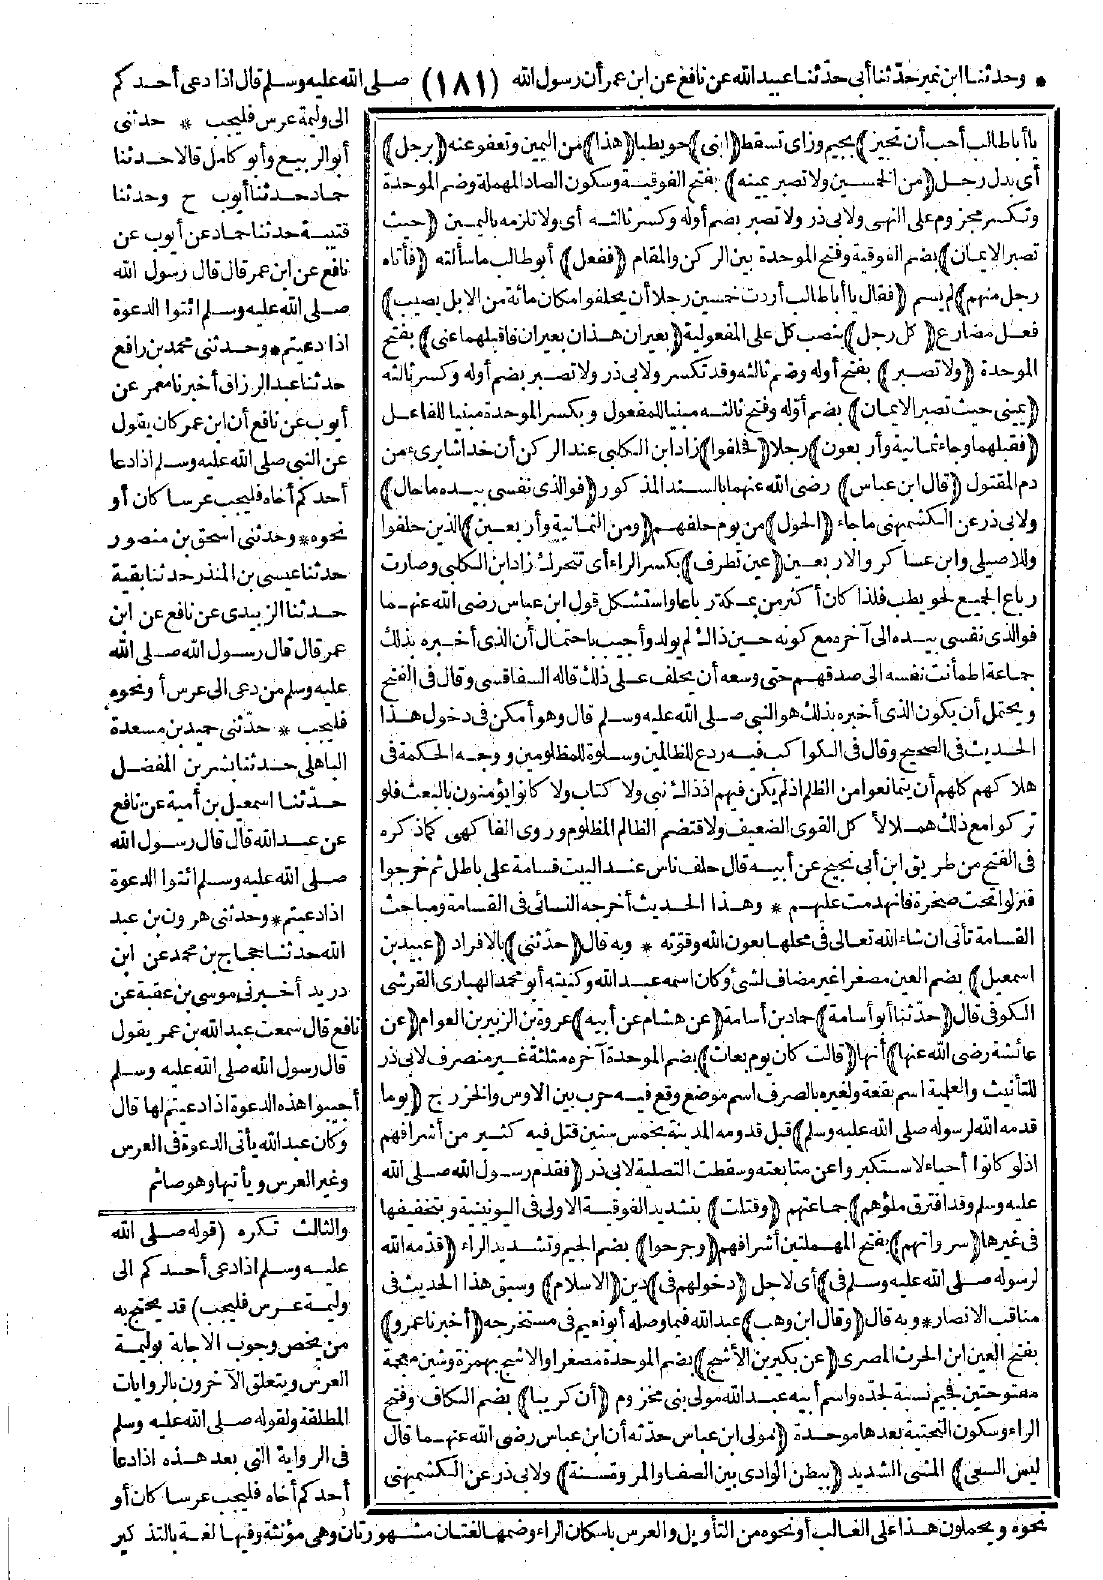 * وحدثنا ابن نمير حدّثنا أبى حدّثنا عبيد الله عن نافع عن ابن عمر أن رسول الله (١٨١) صلى الله عليه وسلم قال اذا دعى أحدكم
الى وليمة عرس فليجب * حدثنى
أبو الربيع وأبو كامل قالا حدثنا
حماد حدثنا أيوب ح وحدثنا
قتيبة حدثنا حماد عن أيوب عن
نافع عن ابن عمر قال قال رسول الله
صلى الله عليه وسلم ائتوا الدعوة
اذا دعيتم * وحدثنى محمد بن رافع
حدثنا عبد الرزاق أخبرنا معمر عن
أيوب عن نافع أن ابن عمر كان يقول
عن النبى صلى الله عليه وسلم اذا دعا
أحدكم أخاه فليجب عرسا كان أو
نحوه * وحدثنى اسحق بن منصور
حدثنا عيسى بن المنذر حدثنا بقية
حدثنا الزبيدى عن نافع عن ابن
عمر قال قال رسول الله صلى الله
عليه وسلم من دعى الى عرس أو نحوه
فليجب * حدّثنى حميد بن مسعدة
الباهلى حدثنا بشر بن المفضل
حدّثنا اسمعيل بن أمية عن نافع
عن عبد الله قال قال رسول الله
صلى الله عليه وسلم ائتوا الدعوة
اذا دعيتم * وحدثنى هرون بن عبد
الله حدثنا حجاج بن محمد عن ابن
دريد أخبرنى موسى بن عقبة عن
نافع قال سمعت عبد الله بن عمر يقول
قال رسول الله صلى الله عليه وسلم
أجيبوا هذه الدعوة اذا دعيتم لها قال
وكان عبد الله يأتى الدعوة فى العرس
وغير العرس ويأتيها وهو صائم
يا أبا طالب أحب أن تجيز) بجيم وزاى تسقط (ابنى) حويطبا (هذا) من اليمين وتعفو عنه (برجل)
أى بدل رجل (من الخمسين ولا تصبر يمينه) بفتح الفوقية وسكون الصاد المهملة وضم الموحدة
وتكسر مجزوم على النهى ولابى ذر ولا تصبر بضم أوله وكسر ثالثه أى ولا تلزمه باليمين (حيث
تصبر الايمان) بضم الفوقية وفتح الموحدة بين الركن والمقام (ففعل) أبو طالب ما سألته (فأتاه
رجل منهم) لم يسم (فقال يا أبا طالب أردت خمسين رجلا أن يحلفوا مكان مائة من الابل يصيب)
فعل مضارع (كل رجل) بنصب كل على المفعولية (بعيران هذان بعيران فاقبلهما عنى) بفتح
الموحدة (ولا تصبر) بفتح أوله وضم ثالثه وقد تكسر ولابى ذر ولا تصبر بضم أوله وكسر ثالثه
(يمينى حيث تصبر الايمان) بضم أوّله وفتح ثالثه مبنيا للمفعول وبكسر الموحدة مبنيا للفاعل
(فقبلهما وجاء ثمانية وأربعون) رجلا (فحلفوا) زاد ابن الكلبى عند الركن أن خداشا برىء من
دم المقتول (قال ابن عباس) رضى الله عنهما بالسند المذكور (فوالذى نفسى بيده ما حال)
ولابى ذر عن الكشميهنى ما جاء (الحول) من يوم حلفهم (ومن الثمانية وأربعين) الذين حلفوا
وللاصيلى وابن عساكر والاربعين (عين تطرف) بكسر الراء أى تتحرك زاد ابن الكلبى وصارت
رباع الجميع لحويطب فلذا كان أكثر من بمكة رباعا واستشكل قول ابن عباس رضى الله عنهما
فوالذى نفسى بيده الى آخره مع كونه حين ذاك لم يولد وأجيب باحتمال أن الذى أخبره بذلك
جماعة اطمأنت نفسه الى صدقهم حتى وسعه أن يحلف على ذلك قاله السفاقسى وقال فى الفتح
ويحتمل أن يكون الذى أخبره بذلك هو النبى صلى الله عليه وسلم قال وهو أمكن فى دخول هذا
الحديث فى الصحيح وقال فى الكواكب فيه ردع للظالمين وسلوة للمظلومين ووجه الحكمة فى
هلاكهم كلهم أن يتمانعوا من الظلم اذ لم يكن فيهم اذ ذاك نبى ولا كتاب ولا كانوا يؤمنون بالبعث فلو
تركوا مع ذلك هملا لأكل القوى الضعيف ولاقتضم الظالم المظلوم وروى الفاكهى كما ذكره
فى الفتح من طريق ابن أبى نجيح عن أبيه قال حلف ناس عند البيت قسامة على باطل ثم خرجوا
فنزلوا تحت صخرة فانهدمت عليهم * وهذا الحديث أخرجه النسائى فى القسامة ومباحث
القسامة تأتى ان شاء الله تعالى فى محلها بعون الله وقوّته * وبه قال (حدّثنى) بالافراد (عبيد بن
اسمعيل) بضم العين مصغرا غير مضاف لشئ وكان اسمه عبد الله وكنيته أبو محمد الهبارى القرشى
الكوفى قال (حدّثنا أبو أسامة) حماد بن أسامة (عن هشام عن أبيه) عروة بن الزبير بن العوام (عن
عائشة رضى الله عنها) أنها (قالت كان يوم بعاث) بضم الموحدة آخره مثلثة غير منصرف لابى ذر
للتأنيث والعلمية اسم بقعة ولغيره بالصرف اسم موضع وقع فيه حرب بين الاوس والخزرج (يوما
قدمه الله لرسوله صلى الله عليه وسلم) قبل قدومه المدينة بخمس سنين قتل فيه كثير من أشرافهم
اذ لو كانوا أحياء لاستكبروا عن متابعته وسقطت التصلية لابى ذر (فقدم رسول الله صلى الله
عليه وسلم وقد افترق ملؤهم) جماعتهم (وقتلت) بتشديد الفوقية الاولى فى اليونينية وبتخفيفها
فى غيرها (سرواتهم) بفتح المهملتين أشرافهم (وجرحوا) بضم الجيم وتشديد الراء (قدّمه الله
لرسوله صلى الله عليه وسلم فى) أى لاجل (دخولهم فى) دين (الاسلام) وسبق هذا الحديث فى
مناقب الانصار * وبه قال (وقال ابن وهب) عبد الله فيما وصله أبو نعيم فى مستخرجه (أخبرنا عمرو)
بفتح العين ابن الحرث المصرى (عن بكير بن الأشج) بضم الموحدة مصغرا والاشج بهمزة وشين معجمة
مفتوحتين فجيم نسبة لجدّه واسم أبيه عبد الله مولى بنى مخزوم (أن كريبا) بضم الكاف وفتح
الراء وسكون التحتية بعدها موحدة (مولى ابن عباس حدّثه أن ابن عباس رضى الله عنهما قال
ليس السعى) المشى الشديد (ببطن الوادى بين الصفا والمروة سنة) ولابى ذر عن الكشميهنى
والثالث تكره (قوله صلى الله
عليه وسلم اذا دعى أحدكم الى
وليمة عرس فليجب) قد يحتج به
من يخص وجوب الاجابة بوليمة
العرس ويتعلق الآخرون بالروايات
المطلقة ولقوله صلى الله عليه وسلم
فى الرواية التى بعد هذه اذا دعا
أحدكم أخاه فليجب عرسا كان أو
نحوه ويحملون هذا على الغالب أو نحوه من التأويل والعرس باسكان الراء وضمها لغتان مشهورتان وهى مؤنثة وفيها لغة بالتذكير